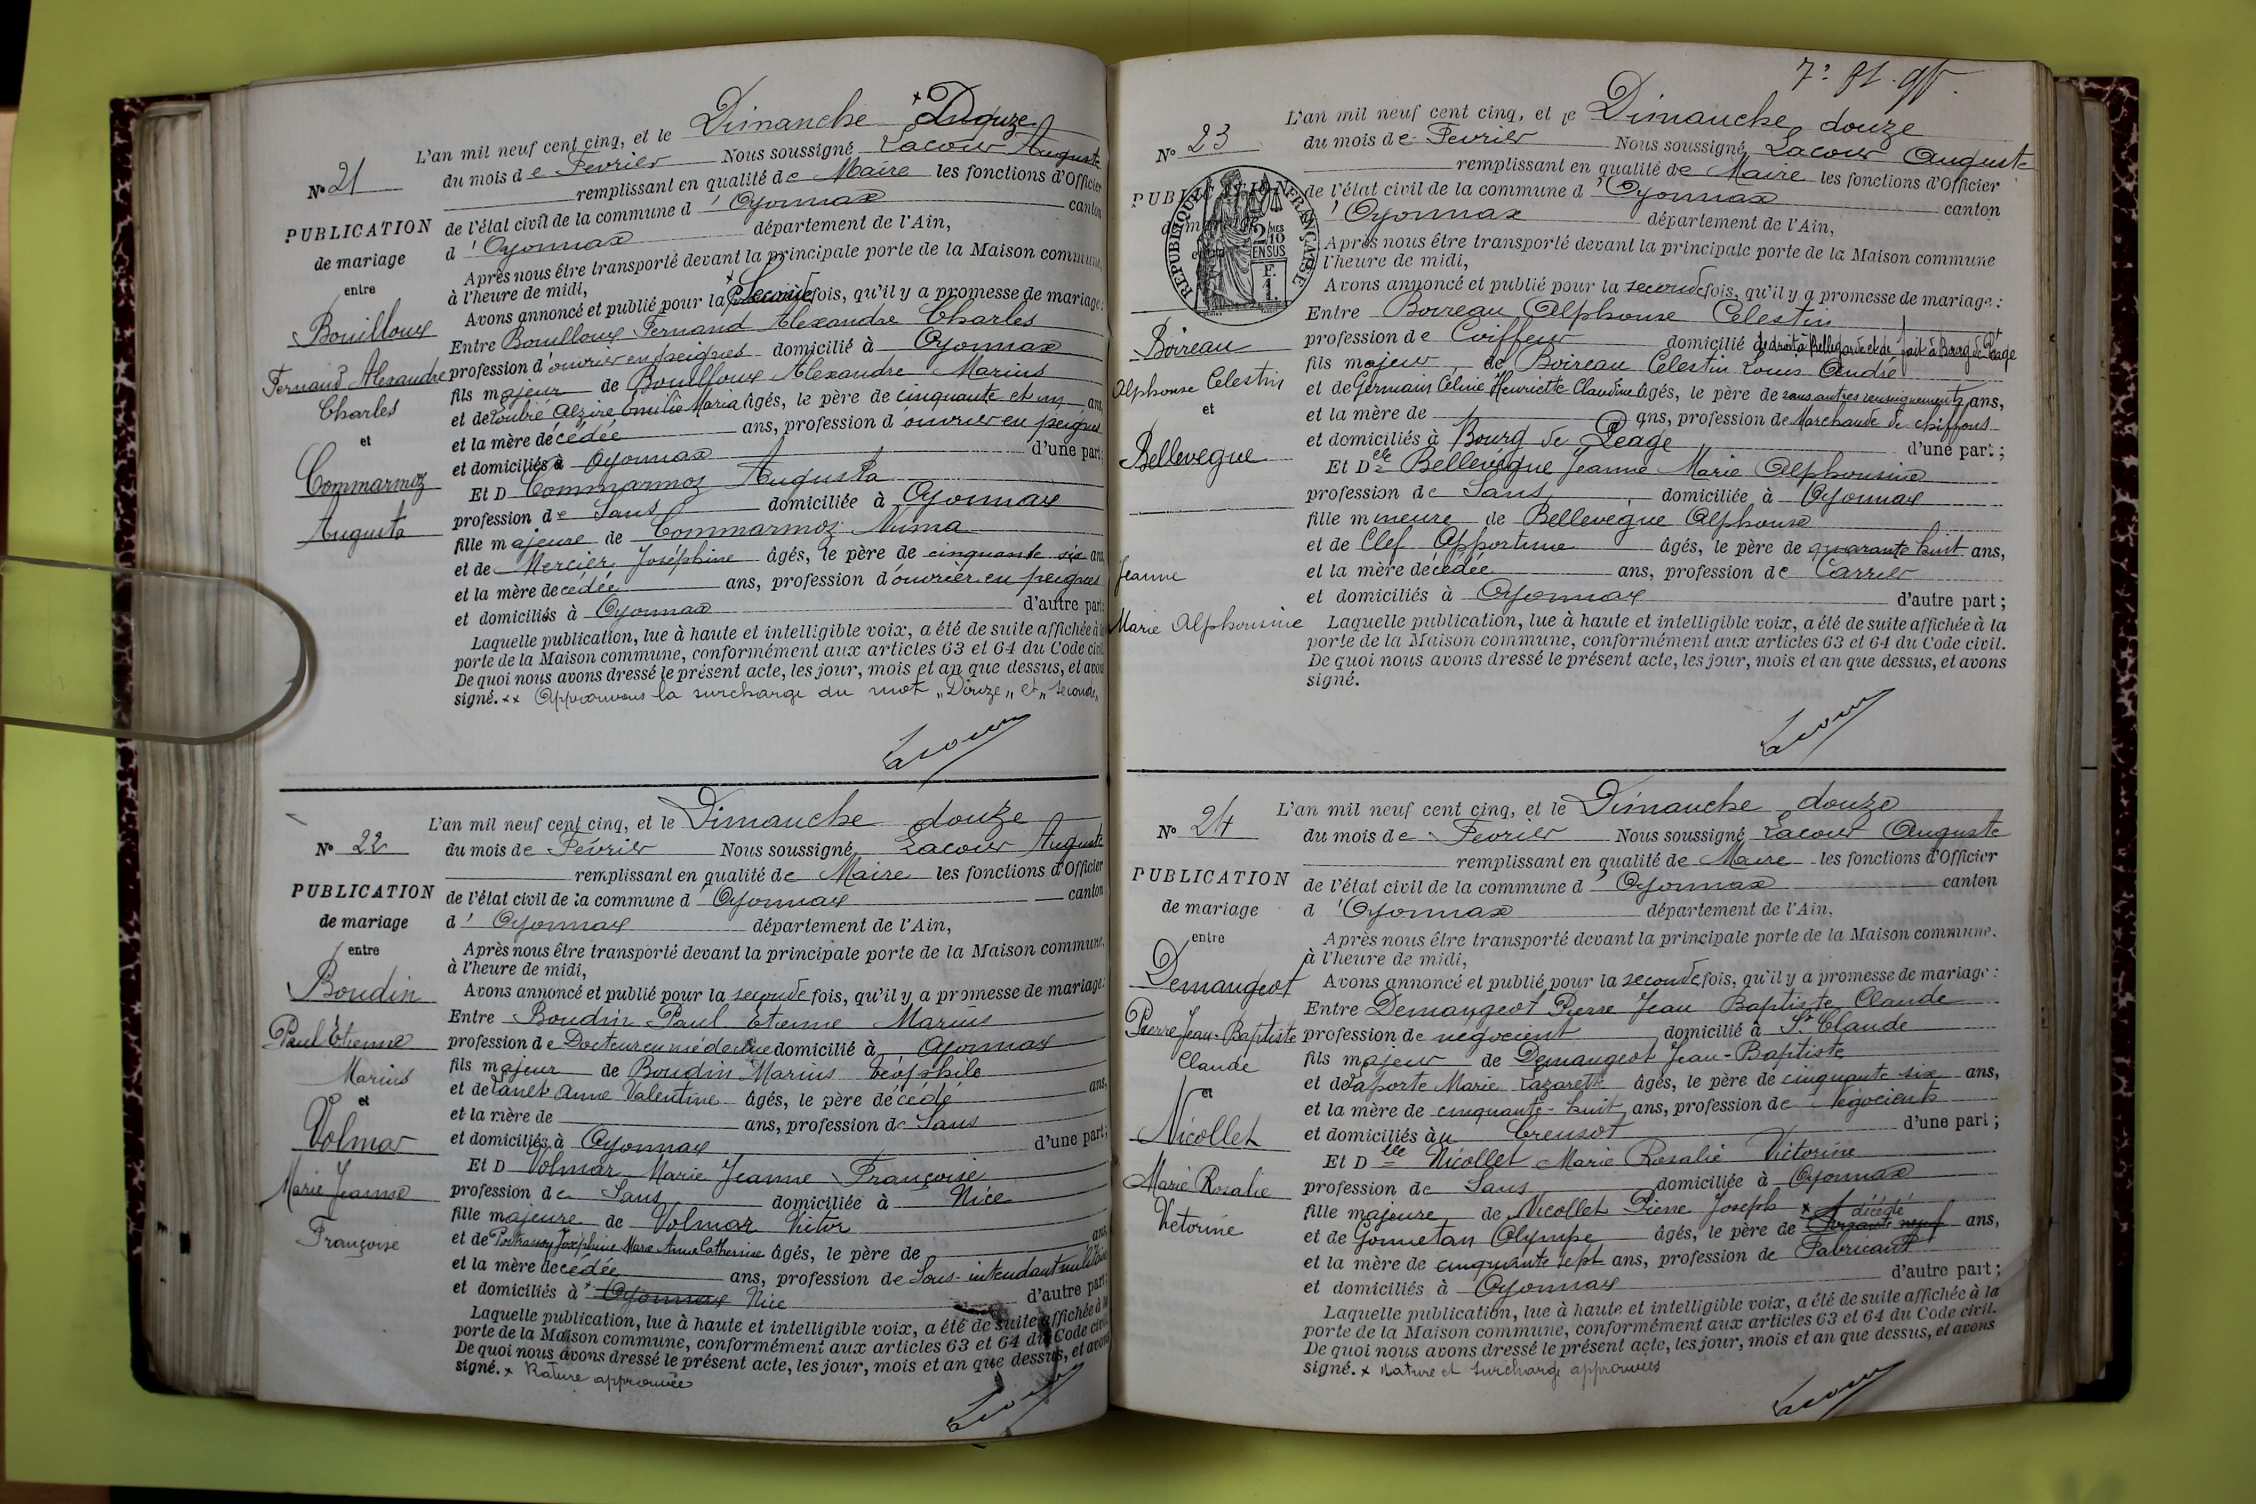 N° 21
PUBLICATION
de mariage
entre
Bouilloux
Fernand Alexandre
Charles
et
Commarmoz
Augusta
L'an mil neuf cent cinq, et le Dimanche × Douze
du mois de Fevrier Nous soussigné Lacour Auguste
remplissant en qualité de Maire les fonctions d'Officier
de l'état civil de la commune d'Oyonnax canton
d'Oyonnax département de l'Ain,
Après nous être transporté devant la principale porte de la Maison commune,
à l'heure de midi,
Avons annoncé et publié pour la × Seconde fois, qu'il y a promesse de mariage:
Entre Bouilloux Fernand Alexandre Charles
profession d'ouvrier en peignes domicilié à Oyonnax
fils majeur de Bouilloux Alexandre Marius
et de Loubié Alzire Emilie Maria âgés, le père de cinquante et un ans,
et la mère décédée ans, profession d'ouvrier en peignes
et domiciliés à Oyonnax d'une part;
Et D Commarmoz Augusta
profession de Sans domiciliée à Oyonnax
fille majeure de Commarmoz Numa
et de Mercier Joséphine âgés, le père de cinquante six ans
et la mère décédée ans, profession d'ouvrier en peignes
et domiciliés à Oyonnax d'autre part;
Laquelle publication, lue à haute et intelligible voix, a été de suite affichée à la
porte de la Maison commune, conformément aux articles 63 et 64 du Code civil.
De quoi nous avons dressé le présent acte, les jour, mois et an que dessus, et avons
signé. ×× Approuvons la surcharge du mot „Douze„ et „seconde„
Lacour
N° 22
PUBLICATION
de mariage
entre
Boudin
Paul Etienne
Marius
et
Volmar
Marie Jeanne
Françoise
L'an mil neuf cent cinq, et le Dimanche douze
du mois de Fevrier Nous soussigné Lacour Auguste
remplissant en qualité de Maire les fonctions d'Officier
de l'état civil de la commune d Oyonnax canton
d'Oyonnax département de l'Ain,
Après nous être transporté devant la principale porte de la Maison commune,
à l'heure de midi,
Avons annoncé et publié pour la seconde fois, qu'il y a promesse de mariage:
Entre Boudin Paul Etienne Marius
profession de Docteur en médecine domicilié à Oyonnax
fils majeur de Boudin Marius Théophile
et de Tanet Anne Valentine âgés, le père décédé ans,
et la mère de ans, profession de Sans
et domiciliés à Oyonnax d'une part;
Et D Volmar Marie Jeanne Françoise
profession de Sans domiciliée à Nice
fille majeure de Volmar Victor
et de Joséphine Marie Anne Catherine âgés, le père de ans,
et la mère décédée ans, profession de Sous-intendant militaire
et domiciliés à × Oyonnax Nice d'autre part;
Laquelle publication, lue à haute et intelligible voix, a été de suite affichée à la
porte de la Maison commune, conformément aux articles 63 et 64 du Code civil.
De quoi nous avons dressé le présent acte, les jour, mois et an que dessus, et avons
signé. × Rature approuvée
Lacour
N° 23
PUBLICATION
de mariage
entre
RÉPUBLIQUE FRANÇAISE
2 MES 10 EN SUS
F 1
Boireau
Alphonse Celestin
et
Bellevegue
Jeanne
Marie Alphonsine
L'an mil neuf cent cinq, et le Dimanche douze
du mois de Fevrier Nous soussigné Lacour Auguste
remplissant en qualité de Maire les fonctions d'Officier
de l'état civil de la commune d'Oyonnax canton
d'Oyonnax département de l'Ain,
Après nous être transporté devant la principale porte de la Maison commune
à l'heure de midi,
Avons annoncé et publié pour la seconde fois, qu'il y a promesse de mariage:
Entre Boireau Alphonse Celestin
profession de Coiffeur domicilié de droit à Bellegarde et de fait à Bourg de Péage
fils majeur de Boireau Celestin Louis André
et de Germain Célinie Henriette Claudine âgés, le père de sans autres renseignements ans,
et la mère de ans, profession de Marchande de chiffons
et domiciliés à Bourg de Péage d'une part;
Et Delle Bellevegue Jeanne Marie Alphonsine
profession de Sans domiciliée à Oyonnax
fille mineure de Bellevegue Alphonse
et de Clef Opportune âgés, le père de quarante huit ans,
et la mère décédée ans, profession de Carrier
et domiciliés à Oyonnax d'autre part;
Laquelle publication, lue à haute et intelligible voix, a été de suite affichée à la
porte de la Maison commune, conformément aux articles 63 et 64 du Code civil.
De quoi nous avons dressé le présent acte, les jour, mois et an que dessus, et avons
signé.
Lacour
N° 24
PUBLICATION
de mariage
entre
Demangeot
Pierre Jean-Baptiste
Claude
et
Nicollet
Marie Rosalie
Victorine
L'an mil neuf cent cinq, et le Dimanche douze
du mois de Fevrier Nous soussigné Lacour Auguste
remplissant en qualité de Maire les fonctions d'Officier
de l'état civil de la commune d'Oyonnax canton
d'Oyonnax département de l'Ain,
Après nous être transporté devant la principale porte de la Maison commune,
à l'heure de midi,
Avons annoncé et publié pour la seconde fois, qu'il y a promesse de mariage:
Entre Demangeot Pierre Jean Baptiste Claude
profession de negocient domicilié à St Claude
fils majeur de Demangeot Jean-Baptiste
et de Laporte Marie Lazarette âgés, le père de cinquante six ans,
et la mère de cinquante-huit ans, profession de Négocients
et domiciliés au Creusot d'une part;
Et Delle Nicollet Marie Rosalie Victorine
profession de Sans domiciliée à Oyonnax
fille majeure de Nicollet Pierre Joseph × décédé
et de Gonnetan Olympe âgés, le père de soixante neuf ans,
et la mère de cinquante sept ans, profession de Fabricant
et domiciliés à Oyonnax d'autre part;
Laquelle publication, lue à haute et intelligible voix, a été de suite affichée à la
porte de la Maison commune, conformément aux articles 63 et 64 du Code civil.
De quoi nous avons dressé le présent acte, les jour, mois et an que dessus, et avons
signé. × Rature et surcharge approuvées
Lacour